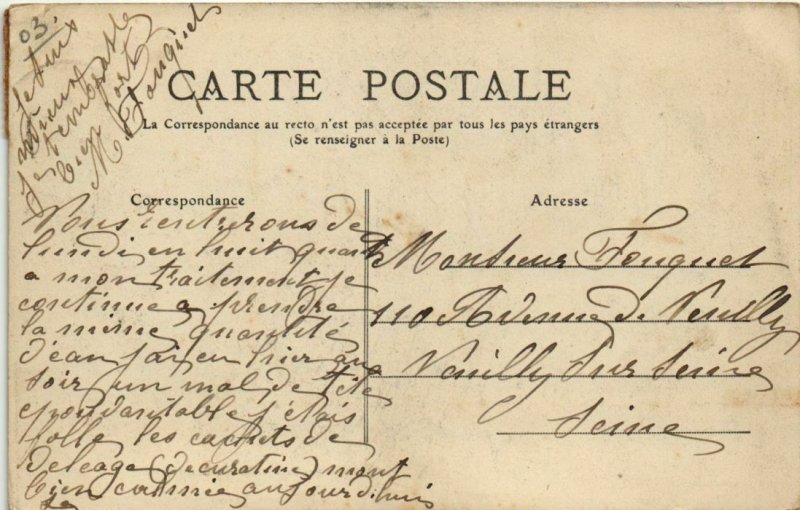 03.
CARTE POSTALE
La Correspondance au recto n'est pas acceptée par tous les pays étrangers
(Se renseigner à la Poste)
Correspondance
Nous rentrerons de
lundi en huit quant
a mon traitement je
continue a prendre
la même quantité
d'eau j'ai eu hier au
soir un mal de tête
epouvantable j'étais
folle les cachets de
Deleage (decuratine) mont
bien calmée aujourd'hui
je
je suis
mieux
je t'embrasse
bien fort
M. Fouquet
Adresse
Monsieur Fouquet
110 Avenue de Neuilly
Neuilly sur Seine
Seine